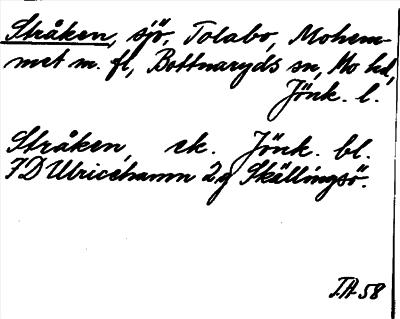 Stråken, sjö, Tolabo, Mohem-
met m. fl, Bottnaryds sn, Mo hd,
Jönk. l.
Stråken, ek. Jönk. bl.
7D Ulricehamn 2g Skällingsö.
I.A. 58